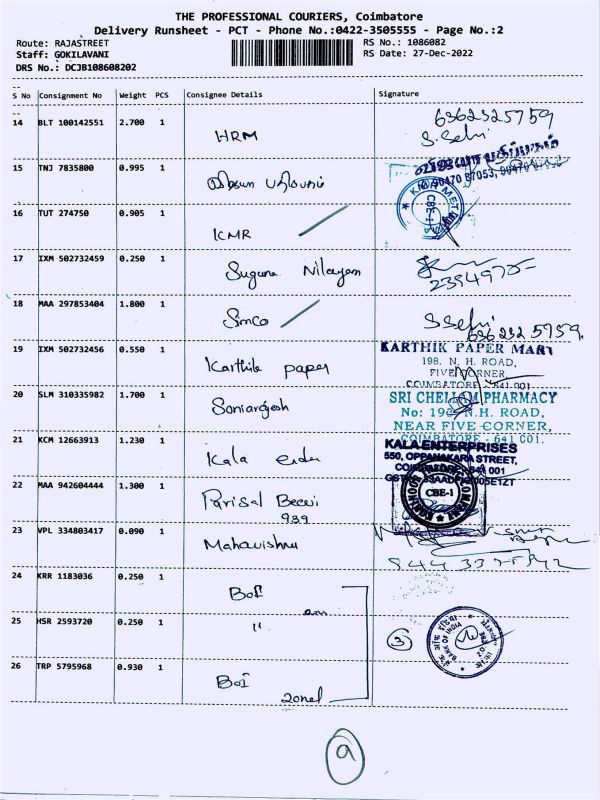 THE PROFESSIONAL COURIERS, Coimbatore
Delivery Runsheet - PCT - Phone No.:0422-3505555 - Page No.:2
Route: RAJASTREET RS No.: 1086082
Staff: GOKILAVANI RS Date: 27-Dec-2022
DRS No.: DCJB108608202
S No Consignment No Weight PCS Consignee Details Signature
14 BLT 100142551 2.700 1 HRM 6362325759
S.Selvi
15 TNJ 7835800 0.995 1
90470 87053, 90470
16 TUT 274750 0.905 1 KMR
CBE-1
17 IXM 502732459 0.250 1 Suguna Nilayam
18 MAA 297853404 1.800 1 Simco S.Selvi
636232 5759.
19 IXM 502732456 0.550 1 Karthik paper KARTHIK PAPER MART
198. N. H. ROAD,
FIVE CORNER,
COIMBATORE - 641 001.
20 SLM 310335982 1.700 1 SRI CHELLAM PHARMACY
No: 196 N.H. ROAD,
NEAR FIVE CORNER,
COIMBATORE - 641 001.
21 KCM 12663913 1.230 1 Kala KALA ENTERPRISES
550, OPPANAKARA STREET,
COIMBATORE - 641 001
22 MAA 942604444 1.300 1 Parisal
989
CBE-1
23 VPL 334803417 0.090 1 Mahavishnu
24 KRR 1183036 0.250 1 BOI
25 HSR 2593720 0.250 1 "
3
BANK OF INDIA
26 TRP 5795968 0.930 1 BOI
zonel
9